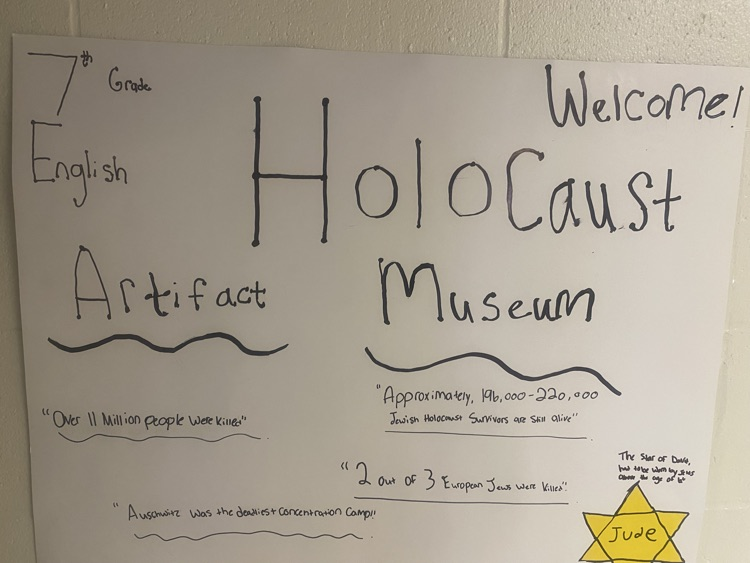 7th Grade
English
Welcome!
HoloCaust
Artifact Museum
"Over 11 Million people were killed"
"Approximately, 196,000-220,000
Jewish Holocaust Survivors are still alive"
"2 out of 3 European Jews were killed"
"Auschwitz was the deadliest concentration camp!!
The Star of David,
had to be worn by Jews
above the age of 6"
Jude